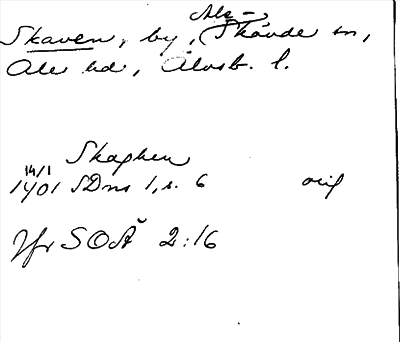 Ale-
Skaven, by, Skövde sn,
Ale hd, Älvsb. l.
Skaghen
14/1
1401 SDns 1, s. 6 orig
Jfr SOÄ 2:16